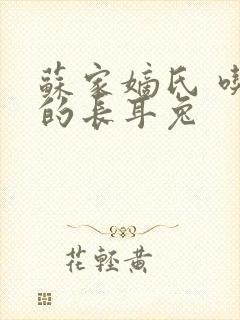 蘇家嫡氏
的長耳兔
花輕黃